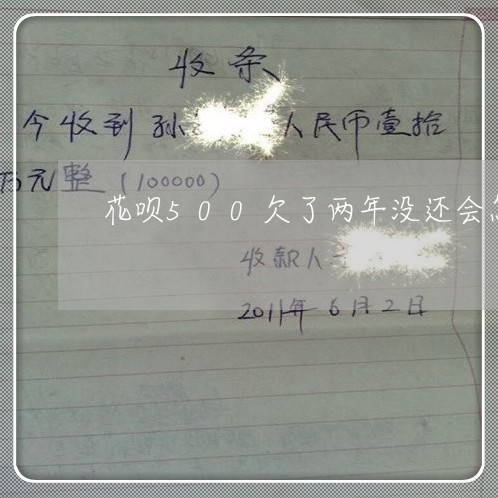 收条
今收到孙 人民币壹拾
万元整(100000)
花呗500欠了两年没还会
收款人
2011年6月2日